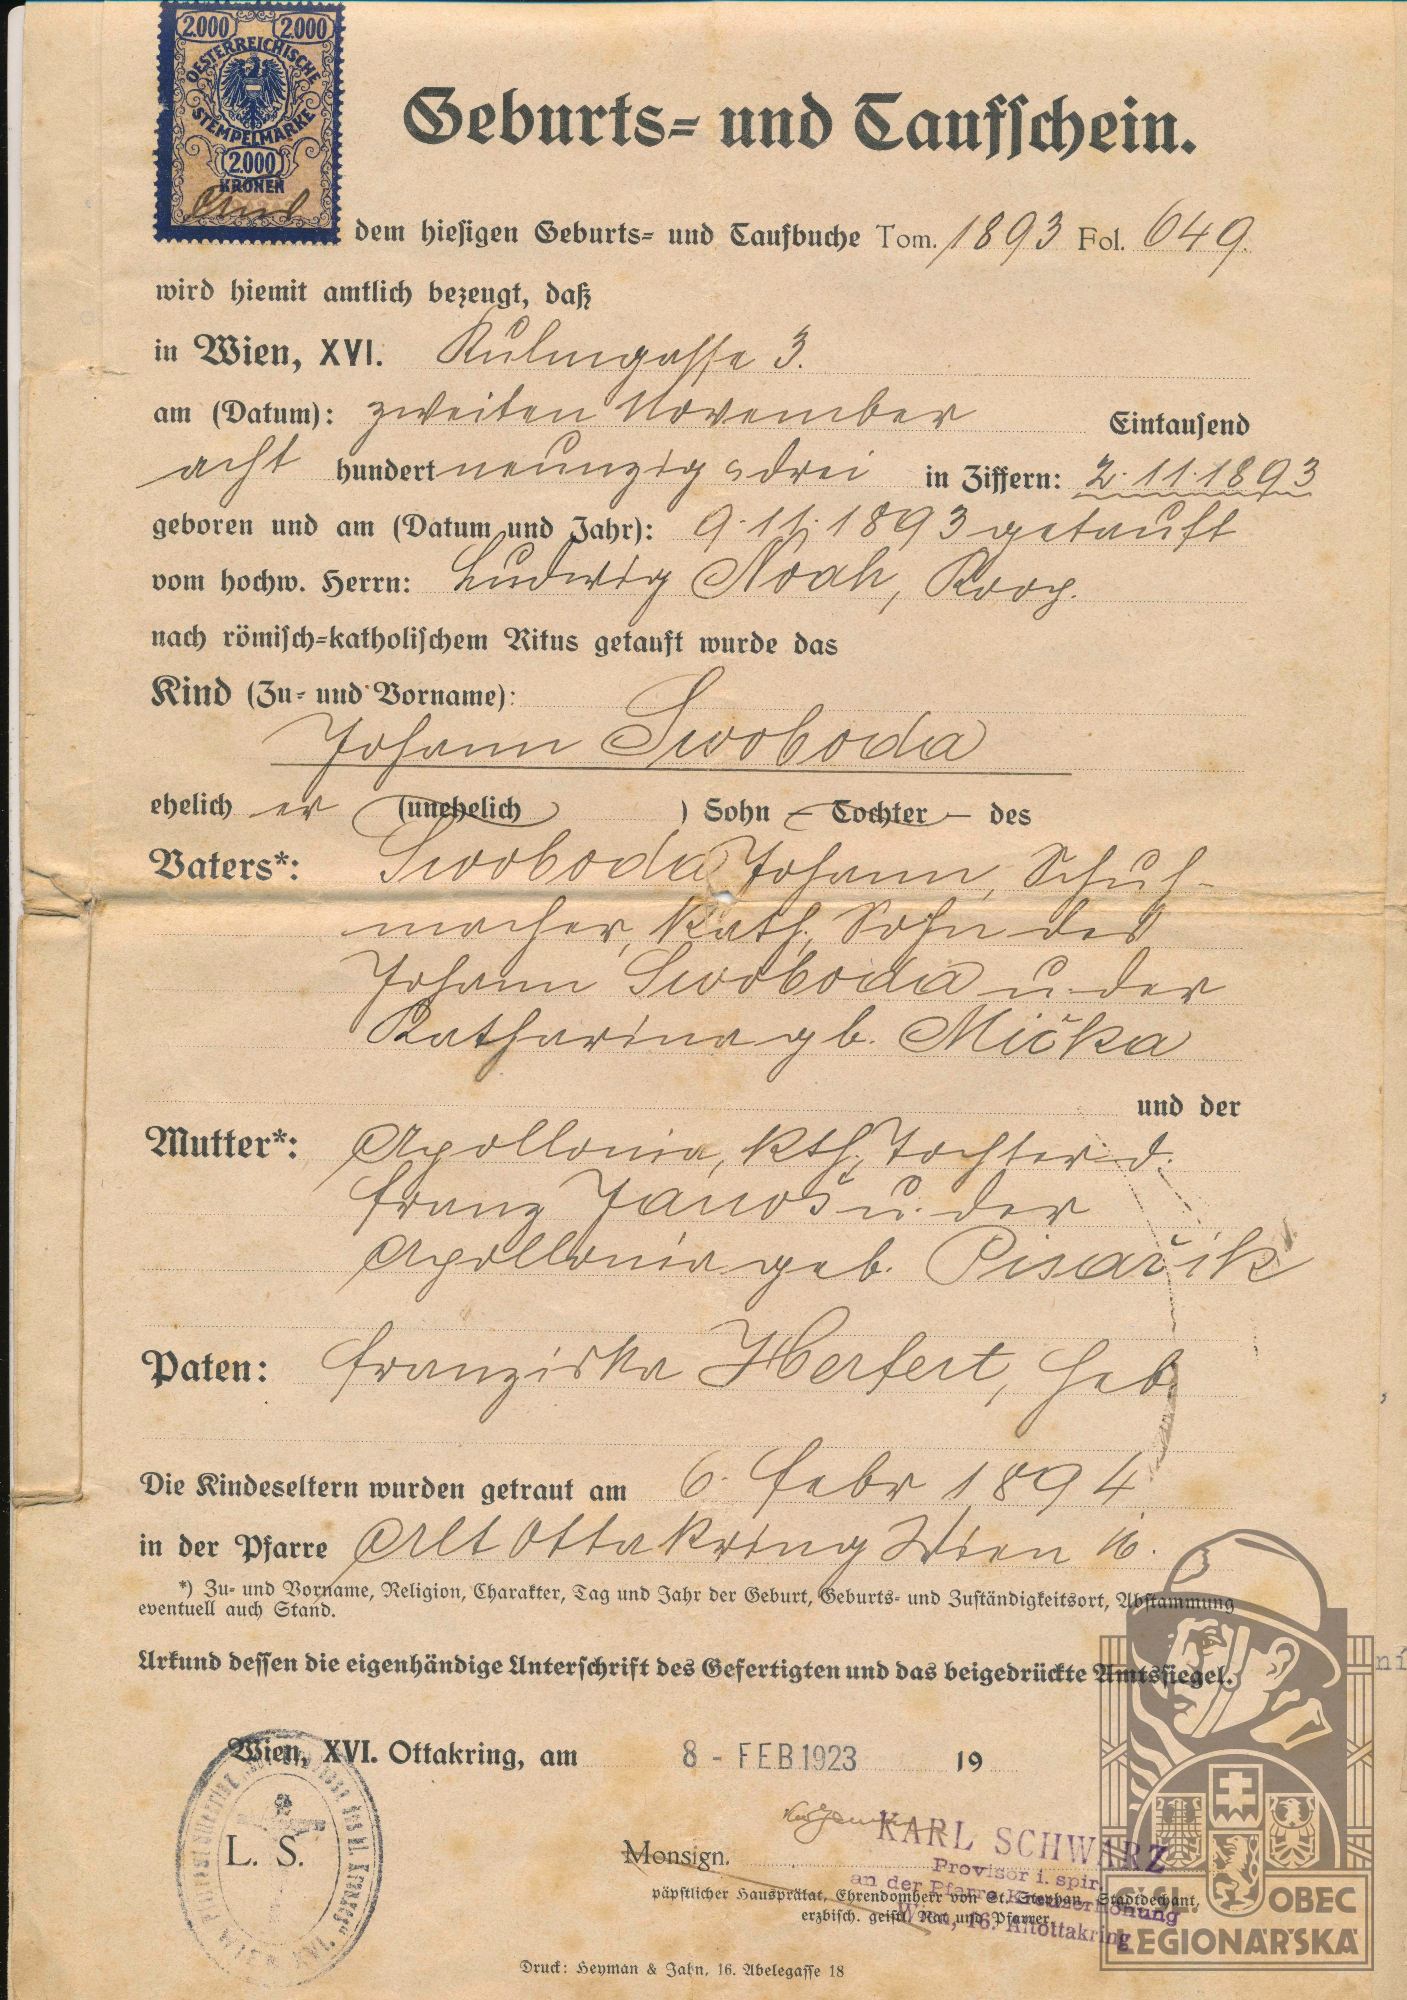 2.000 2.000
OESTERREICHISCHE
STEMPELMARKE
2.000
KRONEN
Geburts- und Taufschein.
dem hiesigen Geburts- und Taufbuche Tom. 1893 Fol. 649.
wird hiemit amtlich bezeugt, daß
in Wien, XVI. Kulmgasse 3.
am (Datum): zweiten November Eintausend
acht hundert neunzig drei in Ziffern: 2.11.1893
geboren und am (Datum und Jahr): 9.11.1893 getauft
vom hochw. Herrn: Ludwig Noah, Koop.
nach römisch-katholischem Ritus getauft wurde das
Kind (Zu- und Vorname):
Johann Swoboda
ehelich er (unehelich ) Sohn - Tochter - des
Vaters*: Swoboda Johann, Schuh-
macher, kath., Sohn des
Johann Swoboda u. der
Katharina gb. Mička
und der
Mutter*: Apollonia, kth., Tochter d.
Franz Janoš u. der
Apollonia geb. Pisařik
Paten: Franziska Herfert, Heb
Die Kindeseltern wurden getraut am 6. Febr 1894
in der Pfarre Alt Ottakring Wien 16.
*) Zu- und Vorname, Religion, Charakter, Tag und Jahr der Geburt, Geburts- und Zuständigkeitsort, Abstammung
eventuell auch Stand.
Urkund dessen die eigenhändige Unterschrift des Gefertigten und das beigedrückte Amtssiegel.
Wien, XVI. Ottakring, am 8 - FEB 1923 19
L. S.
WIEN XVI.
Monsign.
KARL SCHWARZ
Provisor i. spir.
an der Pfarre Kreuzerhöhung
Wien, 16. Altottakring
päpstlicher Hausprälat, Ehrendomherr von St. Stephan, Stadtdechant,
erzbisch. geistl. Rat und Pfarrer.
Druck: Heyman & Jahn, 16. Abelegasse 18
ČSL. OBEC
LEGIONÁŘSKÁ